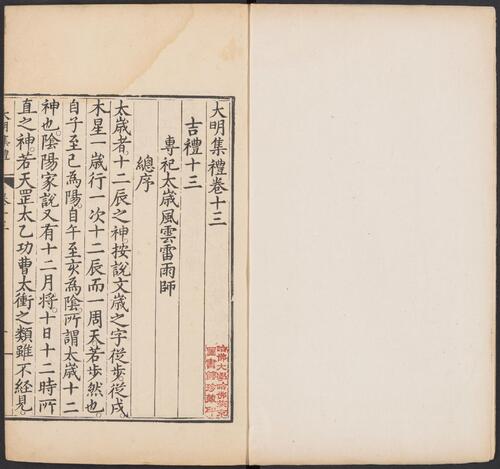 大明集禮卷十三
吉禮十三
專祀太歲風雲雷雨師
總序
太歲者十二辰之神按說文歲之字從步從戌
木星一歲行一次十二辰而一周天若步然也
自子至巳為陽自午至亥為陰所謂太歲十二
神也陰陽家說又有十二月將十日十二時所
直之神若天罡太乙功曹太衝之類雖不經見
大明集禮
卷十三